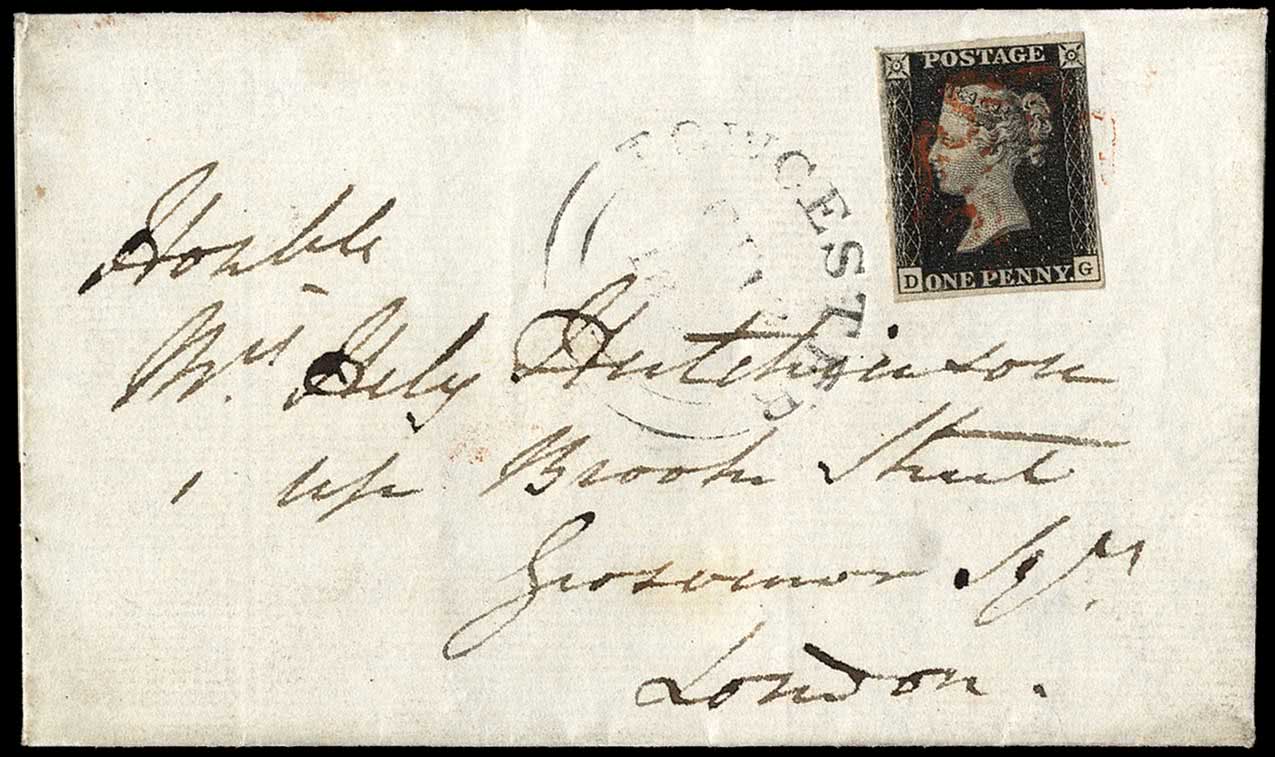 POSTAGE
D ONE PENNY. G
TOWCESTER
Honble
Mrs Hely Hutchinson
1 up Brook Street
Grosvenor Sqr.
London.